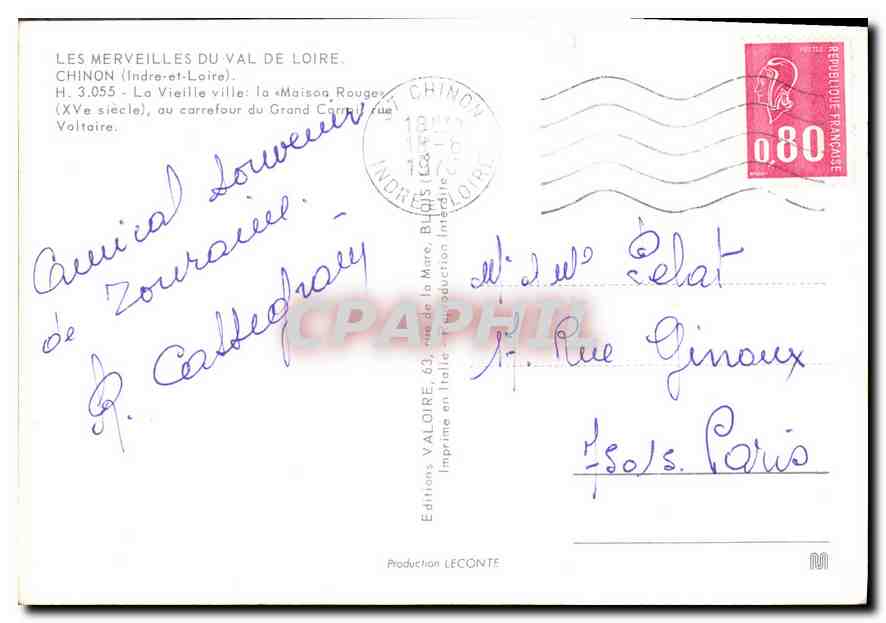 LES MERVEILLES DU VAL DE LOIRE.
CHINON (Indre-et-Loire).
H. 3.055 - La Vieille ville: la «Maison Rouge»
(XVe siècle), au carrefour du Grand Carroi, rue
Voltaire.
Amical souvenir
de Touraine.
R.
CHINON
INDRE LOIRE
POSTES
REPUBLIQUE FRANÇAISE
0,80
Editions VALOIRE, 63, rue de la Mare, BLOIS
Imprimé en Italie - Reproduction Interdite
CPAPHIL
17. Rue Ginoux
75015. Paris
Production LECONTE
M